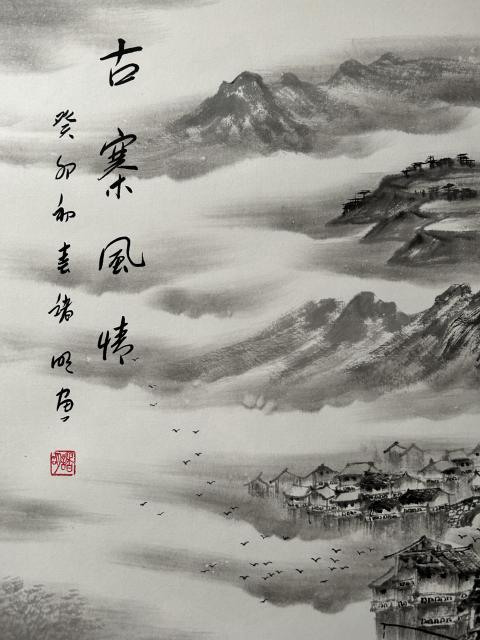 古寨風情
癸卯初春诸明画